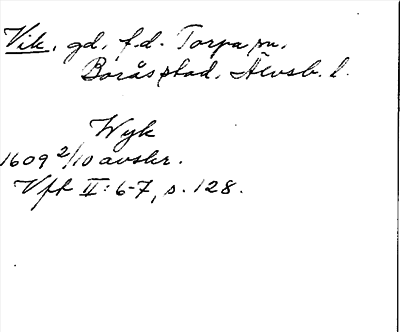 Vik, gd, f.d. Torpa sn,
Borås stad, Älvsb. l.
Wyk
1609 2/10 avskr.
Vft II: 6-7, s. 128.